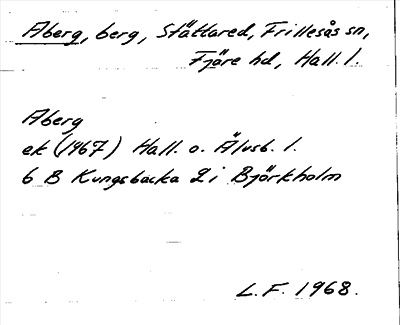 Aberg, berg, Stättared, Frillesås sn,
Fjäre hd, Hall. l.
Aberg
ek (1967) Hall. o. Älvsb. l.
6 B Kungsbacka 2 i Björkholm
L.F. 1968.